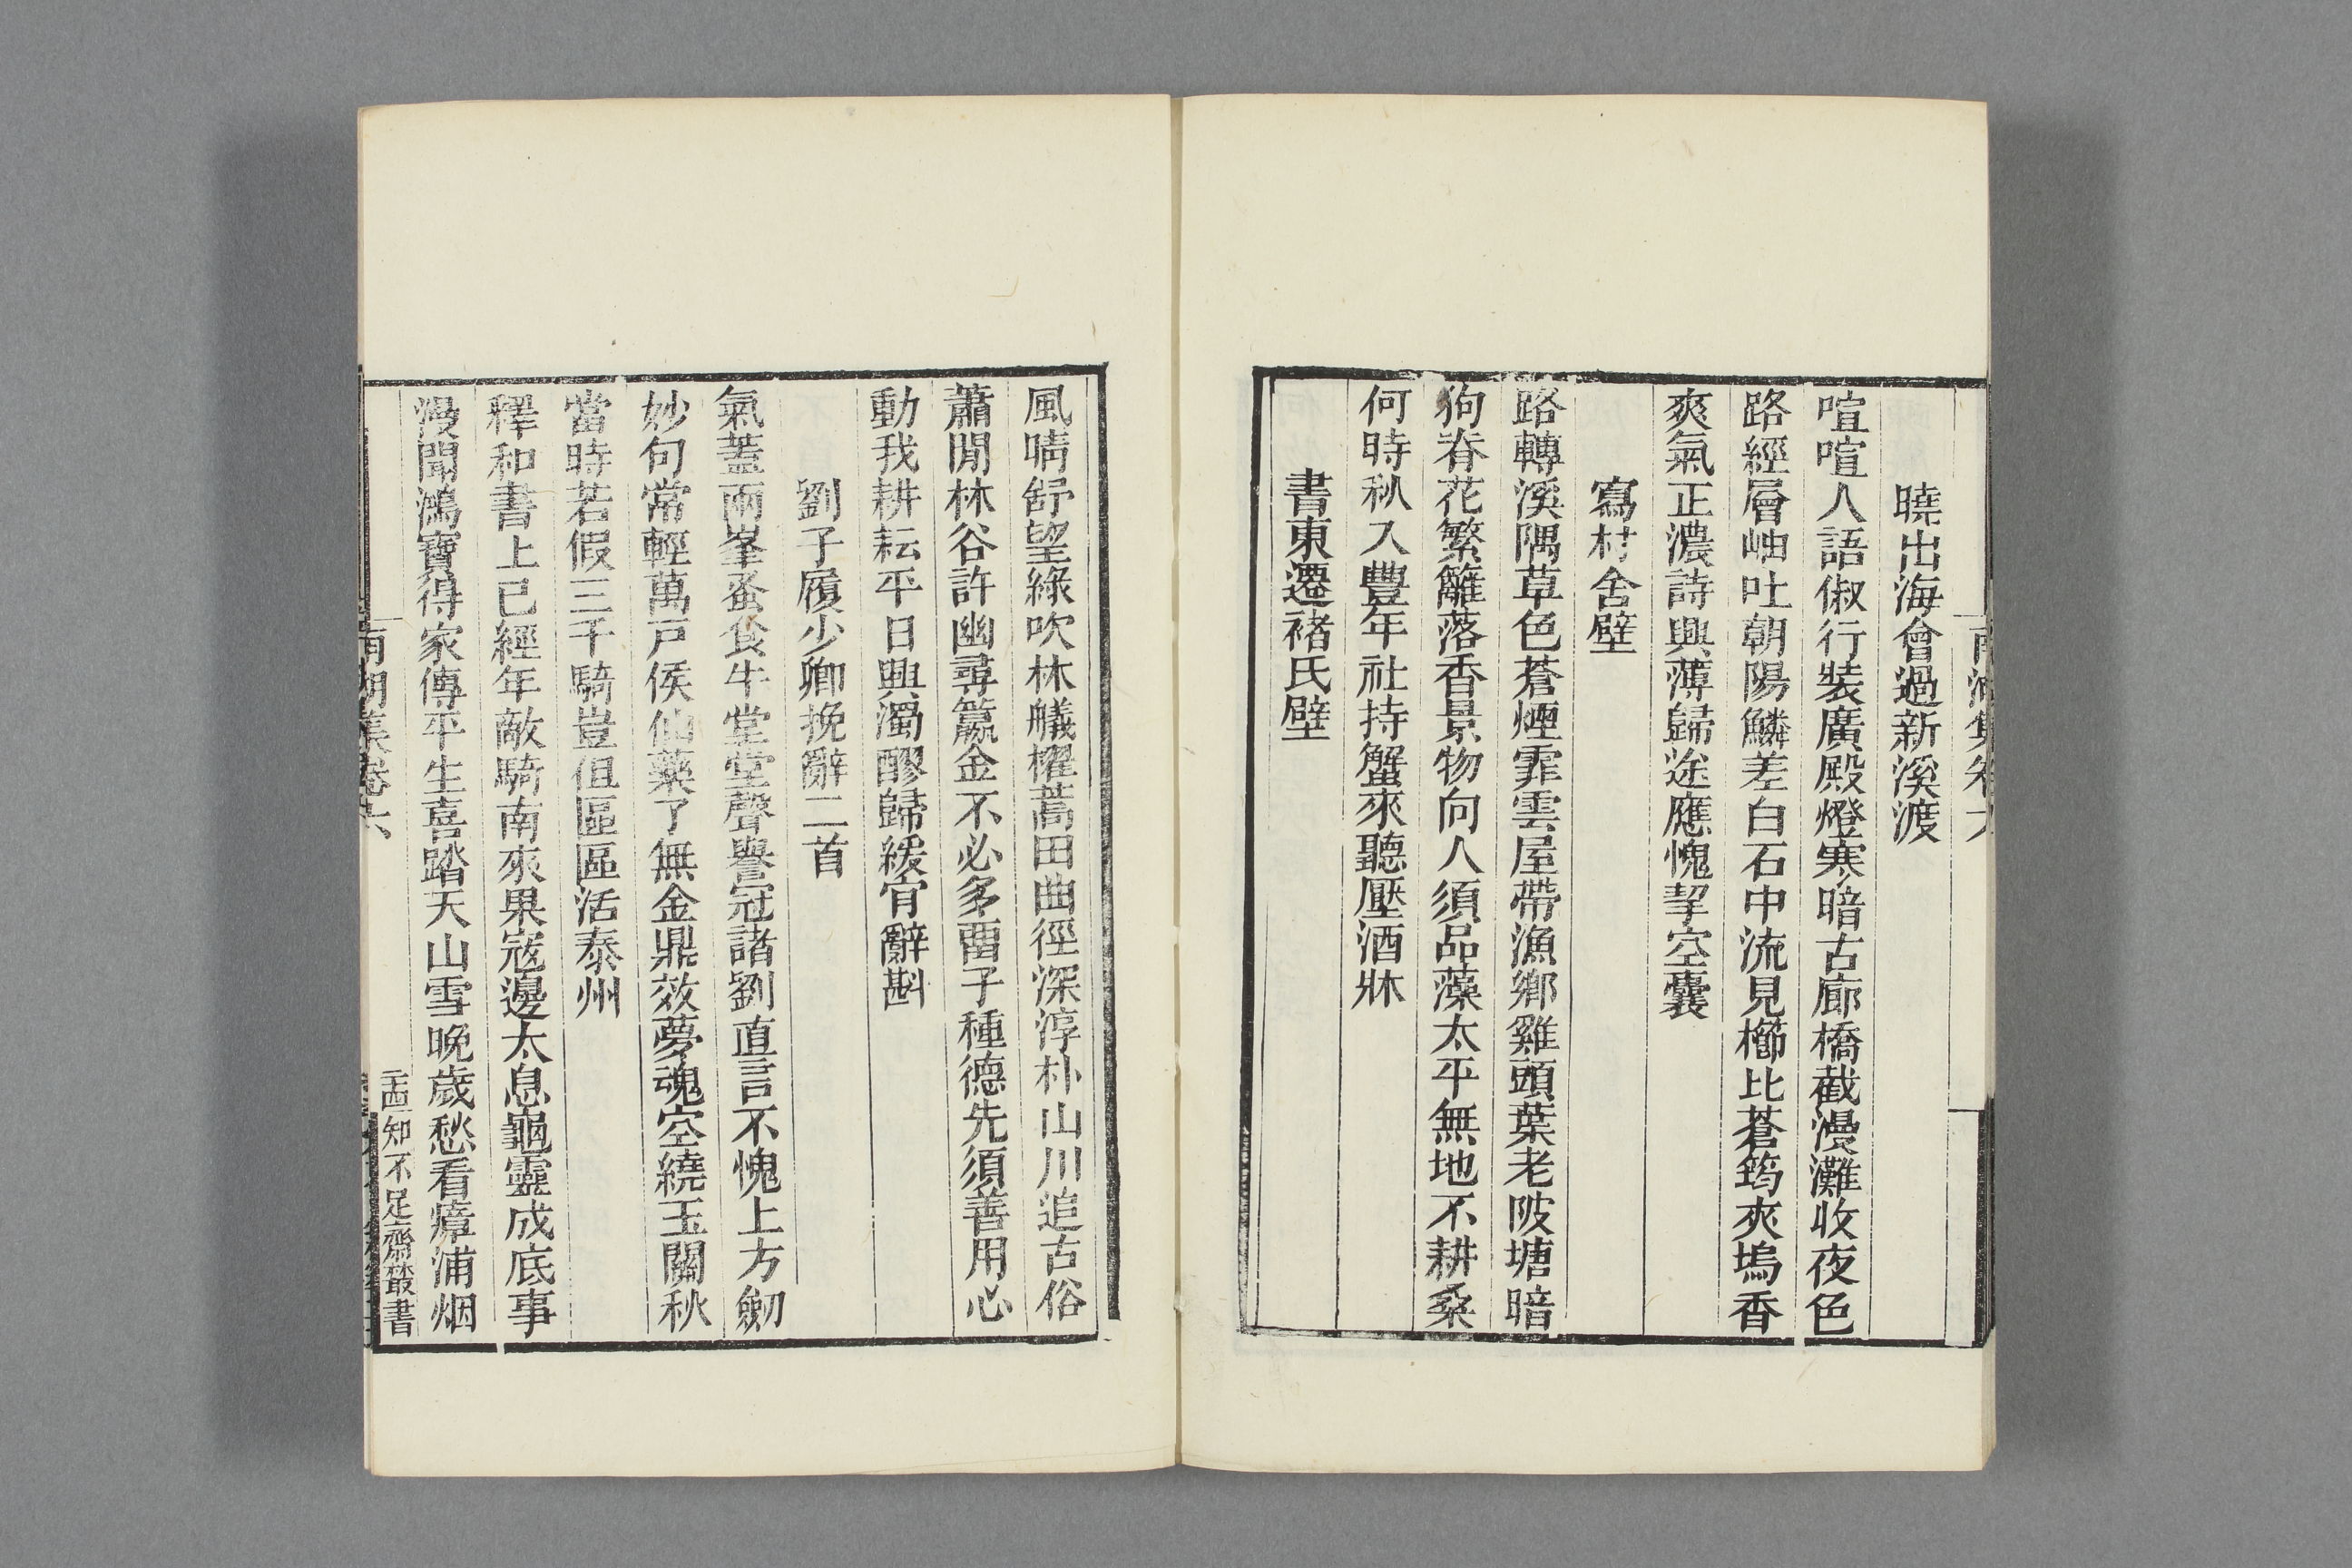 南湖集卷六
曉出海會過新溪渡
喧喧人語俶行裝廣殿燈寒暗古廊橋截漫灘收夜色
路經層岫吐朝陽鱗差白石中流見櫛比蒼筠夾塢香
爽氣正濃詩興薄歸途應愧挈空囊
寫村舍壁
路轉溪隅草色蒼煙霏雲屋帶漁鄉雞頭葉老陂塘暗
狗脊花繁籬落香景物向人須品藻太平無地不耕桑
何時秋入豐年社持蟹來聽壓酒牀
書東遷褚氏壁
風晴舒望綠吹林艤櫂蒿田曲徑深淳朴山川追古俗
蕭閒林谷許幽尋籯金不必多畱子種德先須善用心
動我耕耘平日興濁醪歸緩肎辭斟
劉子履少卿挽辭二首
氣蓋兩峯蚤食牛堂堂聲譽冠諸劉直言不愧上方劒
妙句常輕萬戸侯仙藥了無金鼎效夢魂空繞玉關秋
當時若假三千騎豈但區區活泰州
釋和書上已經年敵騎南來果寇邊太息龜靈成底事
漫聞鴻寶得家傳平生喜踏天山雪晚歲愁看瘴浦烟
南湖集卷六
知不足齋叢書